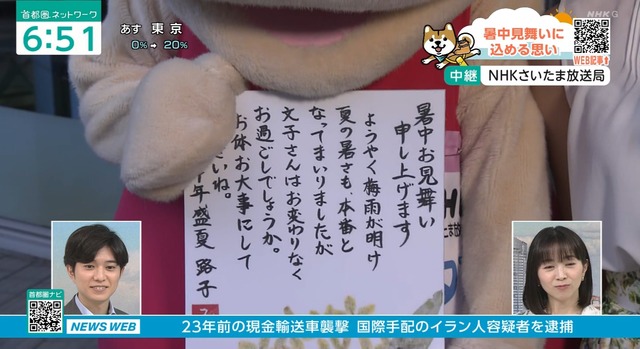 首都圏ネットワーク
6:51
あす 東京
0%→ 20%
暑中見舞いに
込める思い
WEB記事
中継 NHKさいたま放送局
NHK G
暑中お見舞い
申し上げます
ようやく梅雨が明け
夏の暑さも、本番と
なってまいりましたが
文子さんはお変わりなく
お過ごしでしょうか。
お体お大事にして
さいね。
年盛夏 路子
首都圏ナビ
NEWS WEB
23年前の現金輸送車襲撃 国際手配のイラン人容疑者を逮捕